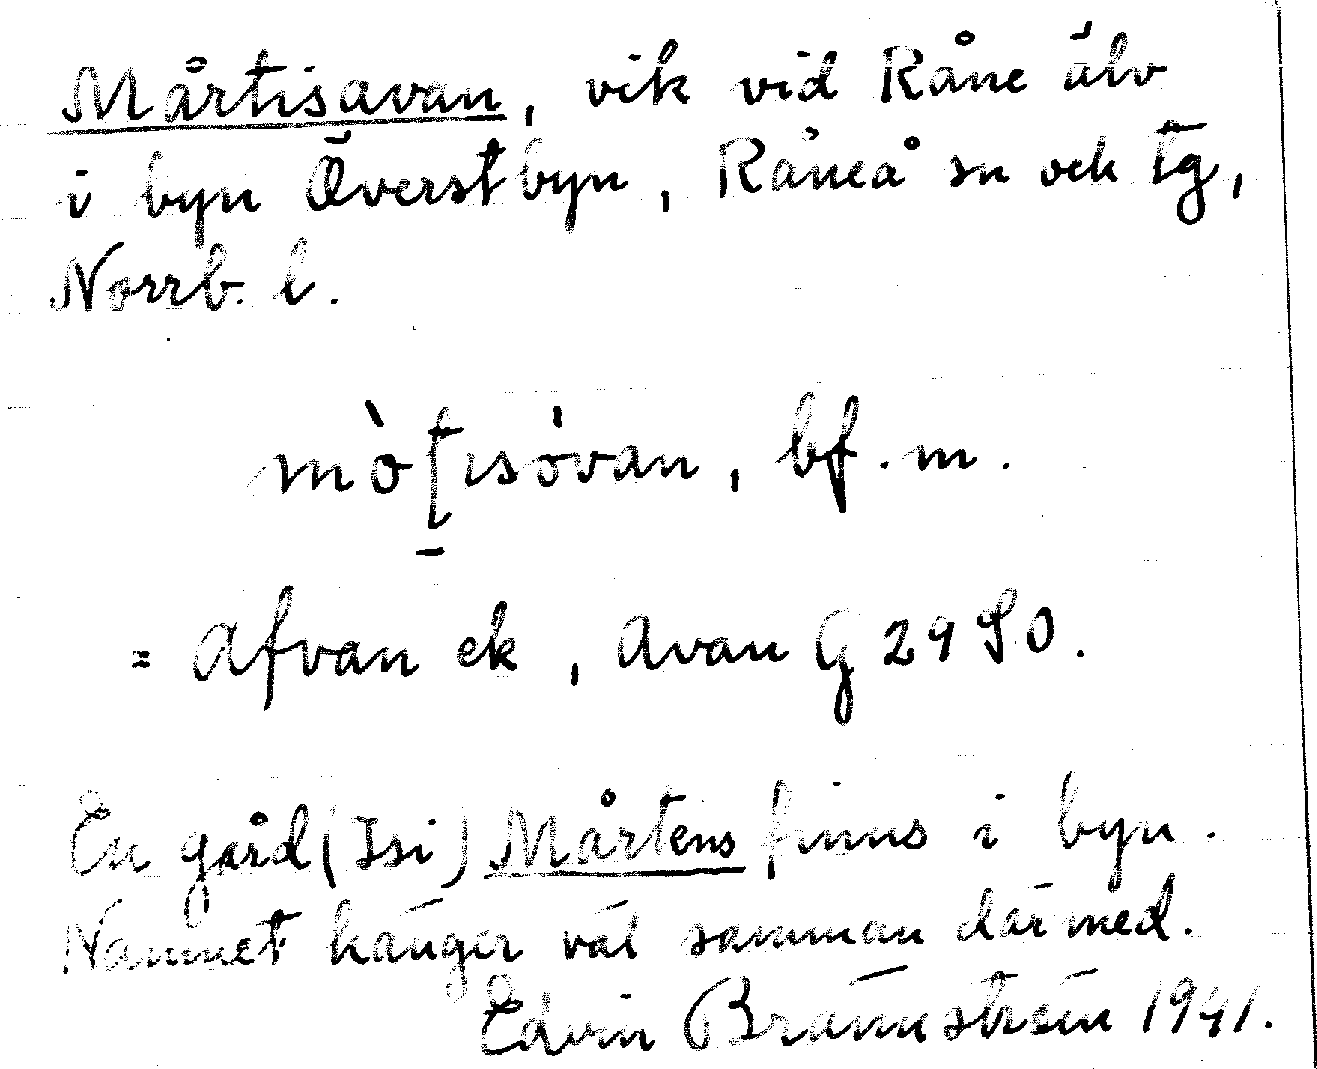 Mårtisavan, vik vid Råne älv
i byn Överstbyn, Råneå sn och tg,
Norrb. l.
mòtısóvan, bf. m.
= Afvan ek, Avan G 2950.
En gård (Isi) Mårtens finns i byn.
Namnet hänger väl samman därmed.
Edvin Brännström 1941.